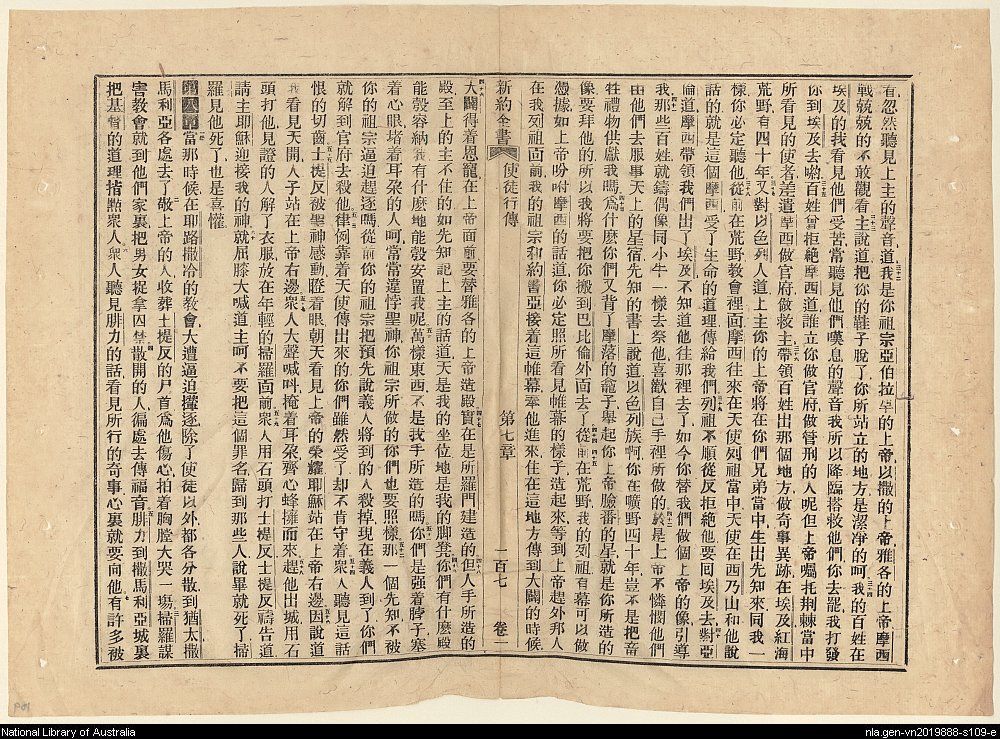 有忽然聽見上主的聲音道我是你祖宗亞伯拉罕的上帝以撒的上帝雅各的上帝摩西
戰兢兢的不敢觀看主說道把你的鞋子脫了你所站立的地方是潔淨的呵我的百姓在
埃及的我看見他們受苦常聽見他們嘆息的聲音我所以降臨搭救他們你去罷我打發
你到埃及去喲百姓曾拒絶摩西道誰立你做官府做管刑的人呢但上帝囑托荆棘當中
所看見的使者差遣摩西做官府做救主帶領百姓出那個地方做奇事異跡在埃及紅海
荒野有四十年又對以色列人道上主你的上帝將在你們兄弟當中生出先知來同我一
樣你必定聽他從前在荒野教會裡面摩西往來在天使列祖當中天使在西乃山和他說
話的就是這個摩西受了生命的道理傳給我們列祖不順從反拒絶他要囘埃及去對亞
倫道摩西帶領我們出了埃及不知道他往那裡去了如今你替我們做個上帝的像引導
我那些百姓就鑄偶像同小牛一樣去祭他喜歡自己手裡所做的於是上帝不憐憫他們
由他們去服事天上的星宿先知的書上說道以色列族呵你在曠野四十年豈不是把畜
牲禮物供獻我嗎爲什麽你們又背了摩落的龕子舉起你上帝臉番的星就是你所造的
像要拜他的所以我將要把你們搬到巴比倫外面去了從前在荒野我的列祖有幕可以做
憑據如上帝吩咐摩西的話道你必定照所看見帷幕的樣子造起來等到上帝趕外邦人
在我列祖面前我的祖宗和約書亞接着這帷幕奉他進來住在這地方傳到大闢的時候
新約全書 使徒行傳 第七章 一百七 卷二
大闢得着恩寵在上帝面前要替雅各的上帝造殿實在是所羅門建造的但人手所造的
殿至上的主不住的如先知記上主的話道天是我的坐位地是我的脚凳你們有什麽殿
能彀容納我有什麽地能彀安置我呢萬樣東西不是我手所造的嗎你們是强着脖子塞
着心眼堵着耳朶的人呵常當違悖聖神你祖宗所做的你們也要照樣那一個先知不被
你的祖宗逼迫趕逐嗎從前你的祖宗把預先說義人將到的人殺掉現在義人到了你們
就解到官府去殺他律例靠着天使傳出來的你們雖然受了却不肯守着衆人聽見這話
恨的切齒士提反被聖神感動瞪着眼朝天看見上帝的榮耀耶穌站在上帝右邊因說道
我看見天開人子站在上帝右邊衆人大聲喊呌掩着耳朶齊心蜂擁而來趕他出城用石
頭打他見證的人解了衣服放在年輕的掃羅面前衆人用石頭打士提反士提反禱告道
請主耶穌迎接我的神就屈膝大喊道主呵不要把這個罪名歸到那些人說畢就死了掃
羅見他死了也是喜懽
第八章 當那時候在耶路撒冷的教會大遭逼迫攆逐除了使徒以外都各分散到猶太撒
馬利亞各處去了敬上帝的人收葬士提反的尸首爲他傷心拍着胸膛大哭一塲掃羅謀
害教會就到他們家裏把男女捉拿囚禁散開的人徧處去傳福音腓力到撒馬利亞城裏
把基督的道理指㸃衆人衆人聽見腓力的話看見所行的奇事心裏就要向他有許多被
National Library of Australia
nla.gen-vn2019888-s109-e